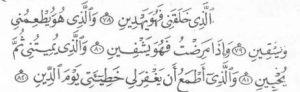 ٱلَّذِى خَلَقَنِى فَهُوَ يَهْدِينِ ٧٨ وَٱلَّذِى هُوَ يُطْعِمُنِى
وَيَسْقِينِ ٧٩ وَإِذَا مَرِضْتُ فَهُوَ يَشْفِينِ ٨٠ وَٱلَّذِى يُمِيتُنِى ثُمَّ
يُحْيِينِ ٨١ وَٱلَّذِىٓ أَطْمَعُ أَن يَغْفِرَ لِى خَطِيٓـَٔتِى يَوْمَ ٱلدِّينِ ٨٢